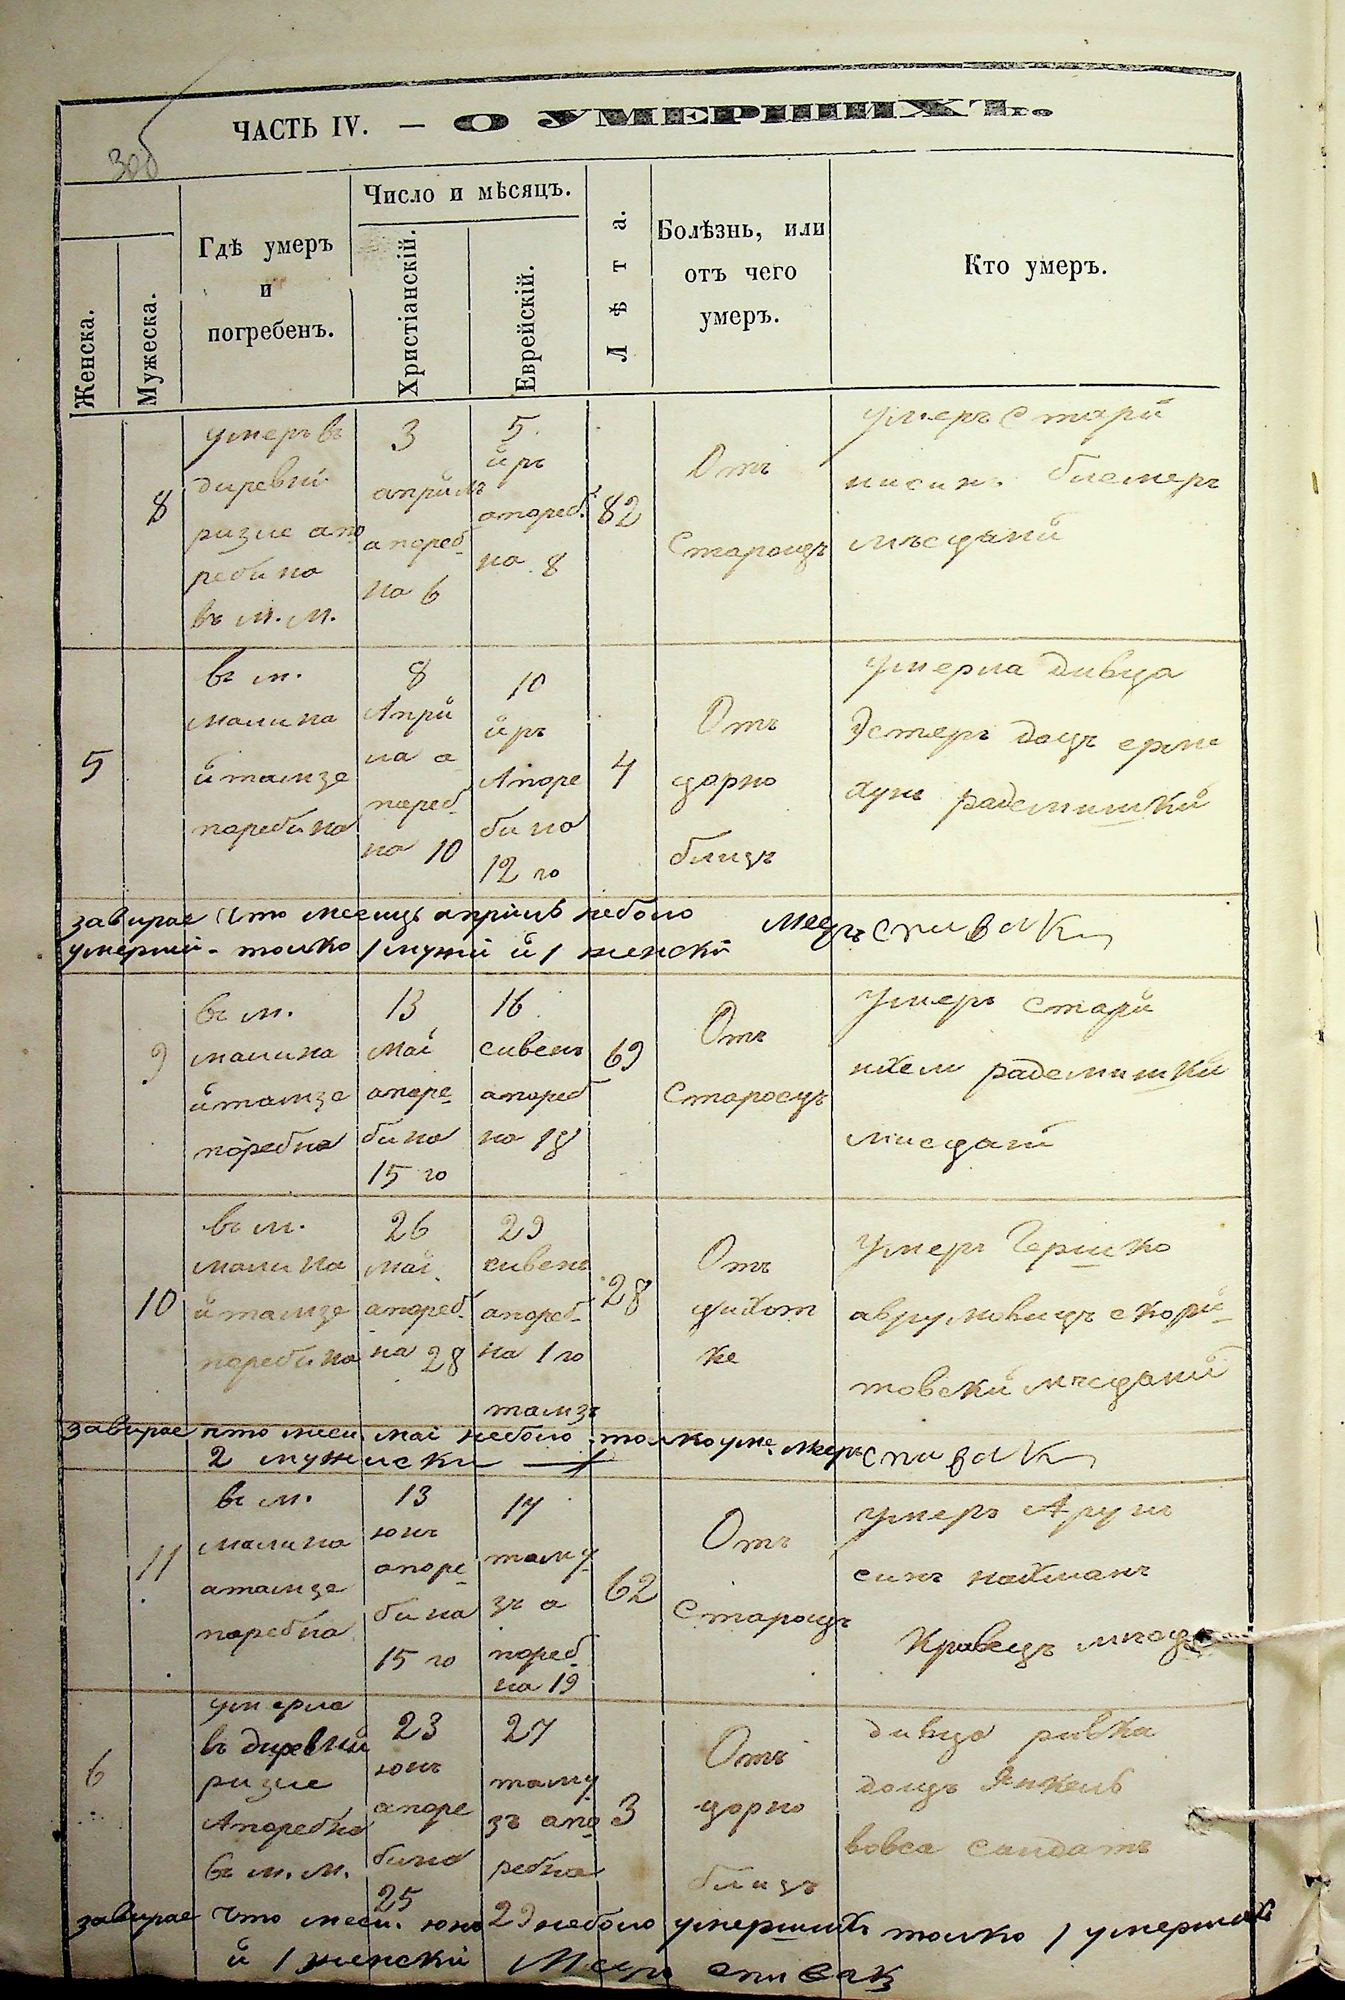 306
ЧАСТЬ IV. — О УМЕРШИХЪ.
Женска.
Мужеска.
Гдѣ умеръ
и
погребенъ.
Число и мѣсяцъ.
Христіанскій.
Еврейскій.
Лѣта.
Болѣзнь, или
отъ чего
умеръ.
Кто умеръ.
8
умеръ въ
диревни
ризие апо
ребина
въ м. м.
3
апрйлъ
апореб
на 6
5
йръ
апореб.
на 8
82
Отъ
Староцъ
умеръ старй
нисинъ
мъсцанй
5
въ м.
малина
йтамзе
поребина
8
Апрй
ла а
пореб
на 10
10
йръ
Апоре
бина
12 го
4
Отъ
горно
близъ
умерла дивца
Эстеръ доцъ
радемишкй
завирае что месицъ апрйлъ неболо
умерши толко 1 мужй й 1 женскй
Мееръ спивакъ
9
въ м.
малина
йтамзе
поребна
13
май
апоре
бина
15 го
16
сивенъ
апореб
на 18
69
Отъ
Старосцъ
умеръ старй
ихел радемишкй
мисцанй
10
въ м.
малина
йтамзе
поребина
26
май
апореб.
на 28
29
сивенъ
апореб
на 1 го
тамзъ
28
Отъ
цихот
ке
умеръ Гершко
аврумовицъ скорй
товскй мъсцанй
завирае что меси. май неболо толко уме. Меер спивакъ
2 мужиски
11
въ м.
малина
атамзе
поребна
13
юнъ
апоре
бина
15 го
17
таму
зъ а
пореб
на 19
62
Отъ
Староцъ
умеръ Арунъ
синъ нахманъ
Кравецъ
6
умерла
въ диревнй
ризие
Апоребна
въ м. м.
23
юнъ
апоре
бина
25
27
таму
зъ апо
ребна
29
3
Отъ
горно
близъ
дивца ривка
доцъ Янкель
вовса салдатъ
завирае что меси. юнъ неболо умершихъ толко 1 умершей
й 1 женскй Меер спивакъ